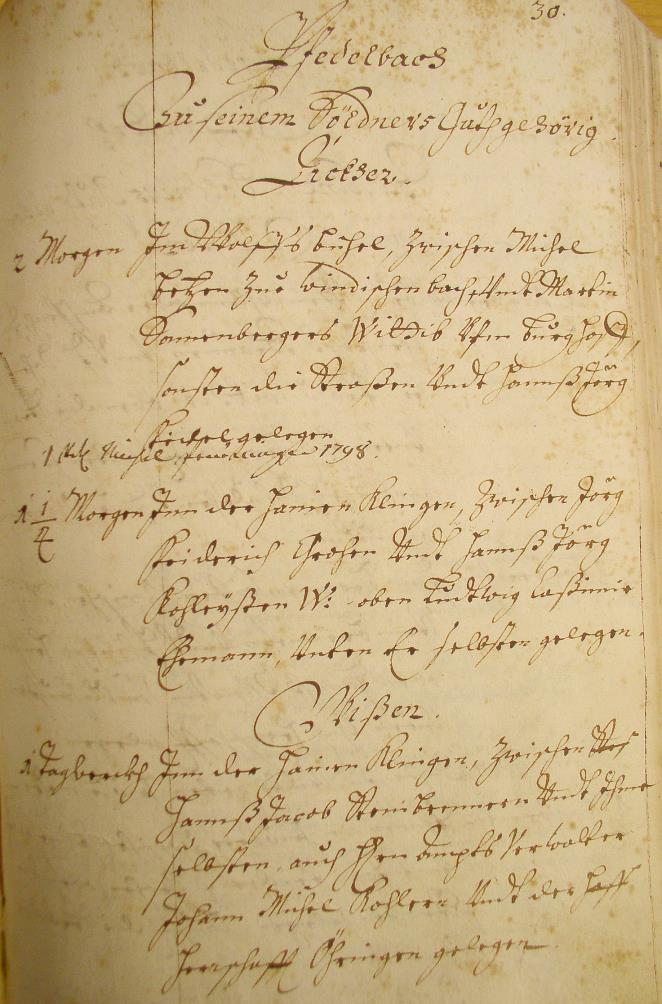 30.
Pfedelbach
Zu seinem Söldners Guth gehörig
Äckher.
2 Morgen Im Wolffs buhel, zwischen Michel
betzen zue windischenbach, Undt Martin
Sonnenbergers Wittib Vfm burghoff,
sonsten die Straßen Undt Hannß Jörg
gelegen
1798.
1 1/4 Morgen Inn der Hainen Klingen, Zwischen Jörg
Friderich Grohen Undt Hannß Jörg
Kohleyßen W: oben Ludtwig Caßimir
Ehemann, Unten Er selbsten gelegen.
Wißen.
1 Tagwerckh Inn der Hainen Klingen, Zwischen
Hannß Jacob Steinbrennern Undt Ihme
selbsten, auch Hrn Ampts Verwalter
Johann Michel Kohlern Undt der
Herrschafft Öhringen gelegen.